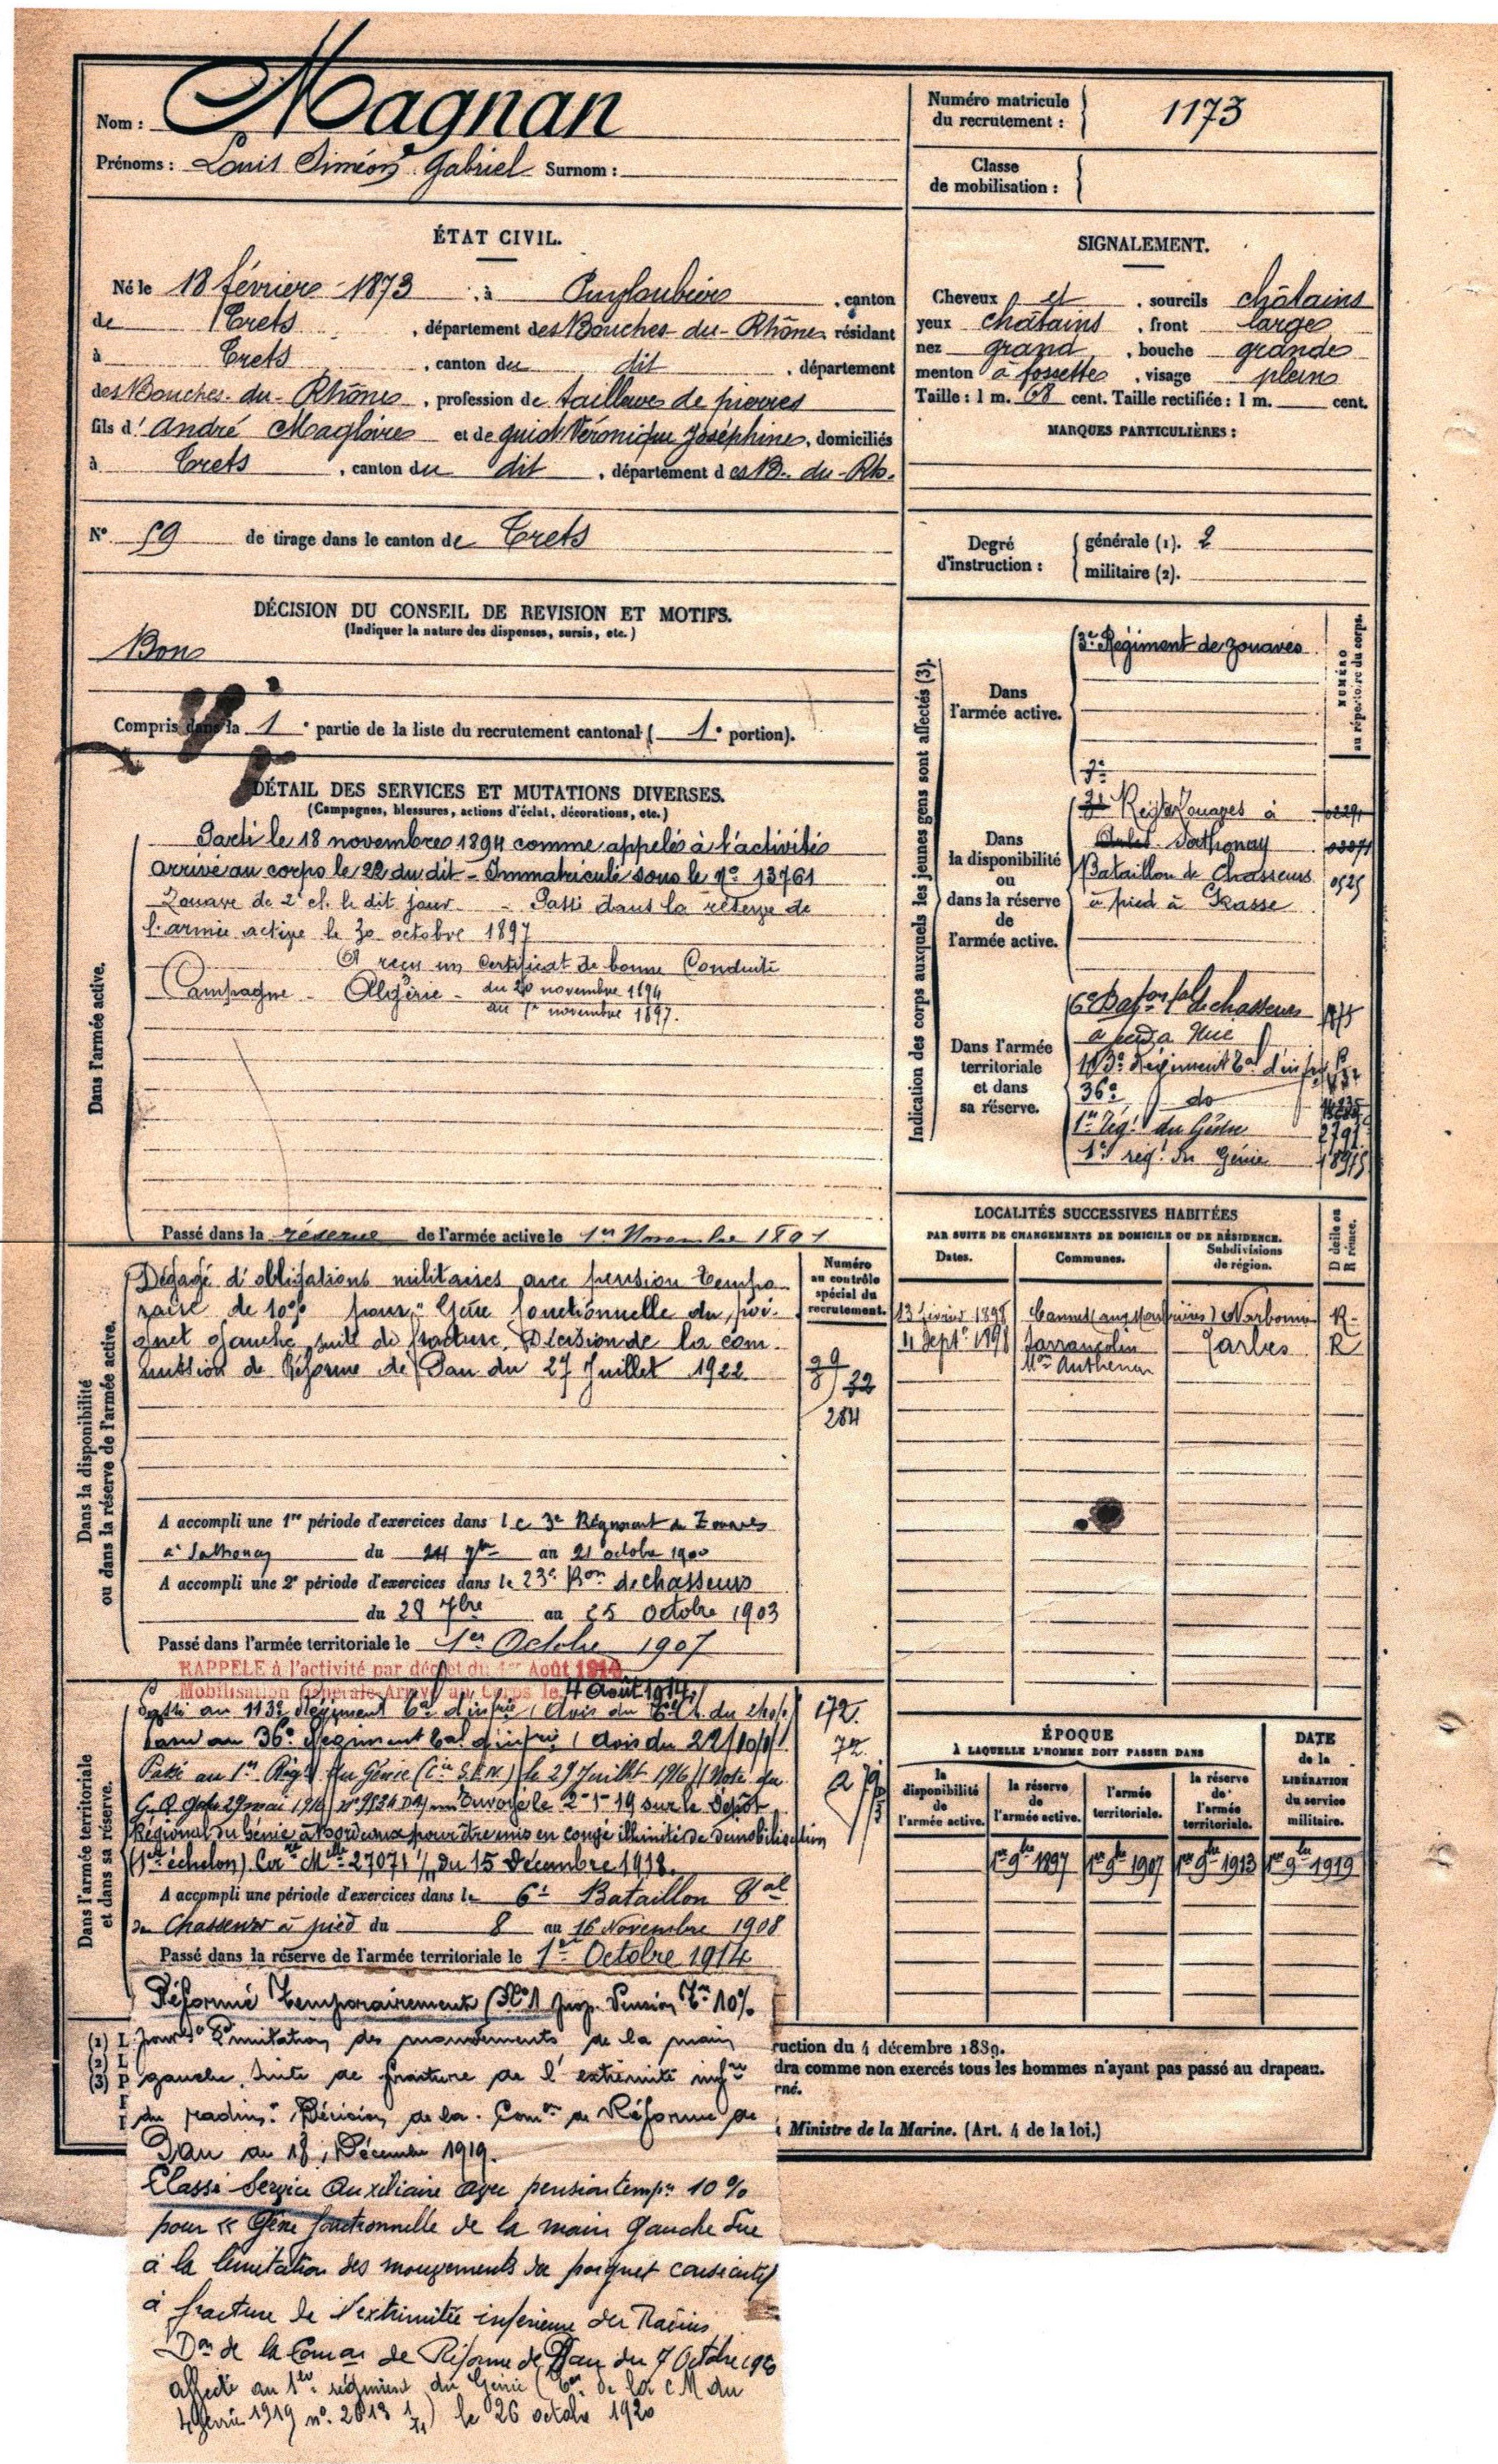 Nom : Magnan
Prénoms : Louis Siméon Gabriel Surnom :
Numéro matricule du recrutement : 1173
Classe de mobilisation :
ÉTAT CIVIL.
Né le 18 février 1873, à Puyloubier, canton
de Trets, département des Bouches-du-Rhône, résidant
à Trets, canton du dit, département
des Bouches-du-Rhône, profession de tailleur de pierres
fils d'André Magloire et de Guid Véronique Joséphine, domiciliés
à Trets, canton du dit, département des B.-du-Rh.
N° 59 de tirage dans le canton de Trets
SIGNALEMENT.
Cheveux et, sourcils châtains
yeux châtains, front large
nez grand, bouche grande
menton à fossette, visage plein
Taille : 1 m. 68 cent. Taille rectifiée : 1 m. cent.
MARQUES PARTICULIÈRES :
Degré d'instruction : générale (1). 2
militaire (2).
DÉCISION DU CONSEIL DE REVISION ET MOTIFS.
(Indiquer la nature des dispenses, sursis, etc.)
Bon
Compris dans la 1e partie de la liste du recrutement cantonal ( 1e portion).
DÉTAIL DES SERVICES ET MUTATIONS DIVERSES.
(Campagnes, blessures, actions d'éclat, décorations, etc.)
Dans l'armée active.
Parti le 18 novembre 1894 comme appelé à l'activité
Arrivé au corps le 22 du dit - Immatriculé sous le N° 13761
Zouave de 2e cl. le dit jour - Passé dans la réserve de
l'armée active le 30 octobre 1897
A reçu un Certificat de bonne Conduite
Campagne - Algérie - du 20 novembre 1894
au 1er novembre 1897.
Passé dans la réserve de l'armée active le 1er Novembre
Indication des corps auxquels les jeunes gens sont affectés (3).
NUMÉRO au répertoire du corps.
Dans l'armée active.
3e Régiment de zouaves
Dans la disponibilité ou dans la réserve de l'armée active.
Zouaves à
Sathonay
Bataillon de Chasseurs 0525
à pied à Grasse
Dans l'armée territoriale et dans sa réserve.
6e Baton tal de chasseurs
à pied à Nice
113e Régiment tal d'infie
36e do
1er Régt du Génie 2791
1er régt du Génie
LOCALITÉS SUCCESSIVES HABITÉES
PAR SUITE DE CHANGEMENTS DE DOMICILE OU DE RÉSIDENCE.
Dates. Communes. Subdivisions de région. D domicile ou R résidence.
13 février 1898 Cannes Narbonne R.
4 Septre 1898 Sarrancolin Tarbes R
Mon Authenan
Dans la disponibilité ou dans la réserve de l'armée active.
Numéro au contrôle spécial du recrutement.
Dégagé d'obligations militaires avec pension tempo-
raire de 10% pour "Gêne fonctionnelle du poi-
gnet gauche suite de fracture. Décision de la com-
mission de Réforme de Pau du 27 Juillet 1922
284
A accompli une 1re période d'exercices dans le 3e Régiment de Zouaves
à Sathonay du 24 7bre au 21 octobre 1900
A accompli une 2e période d'exercices dans le 23e Bon de chasseurs
du 28 7bre au 25 Octobre 1903
Passé dans l'armée territoriale le 1er Octobre 1907
RAPPELÉ à l'activité par décret du 1er Août 1914
Mobilisation Générale Arrivé au Corps le 4 Août 1914.
Dans l'armée territoriale et dans sa réserve.
Passé au 113e Régiment tal d'infie
Passé au 36e Régiment tal d'infie (Avis du
Passé au 1er Régt du Génie (Cie S.E.N.) le 29 Juillet 1916 (Note du
G.Q.G. du 29 mai 1916 Envoyé le 2-1-19 sur le Dépôt
Régional du Génie à Bordeaux pour être mis en congé illimité de démobilisation
(1er échelon) Cire Mlle 27071 du 15 Décembre 1918.
A accompli une période d'exercices dans le 6e Bataillon tal
de Chasseurs à pied du 8 au 16 Novembre 1908
Passé dans la réserve de l'armée territoriale le 1er Octobre 1914
ÉPOQUE
À LAQUELLE L'HOMME DOIT PASSER DANS
la disponibilité de l'armée active. la réserve de l'armée active. l'armée territoriale. la réserve de l'armée territoriale.
DATE de la LIBÉRATION du service militaire.
1er 9bre 1897 1er 9bre 1907 1er 9bre 1913 1er 9bre 1919
Réformé temporairement N°1 prop. Pension tre 10%
pour "limitation des mouvements de la main
gauche, suite de fracture de l'extrémité infre
du radius". Décision de la Comon de Réforme de
Pau du 18 Décembre 1919.
Classé Service Auxiliaire avec pension tempre 10 %
pour "Gêne fonctionnelle de la main gauche due
à la limitation des mouvements du poignet consécutif
à fracture de l'extrémité inférieure du Radius
Don de la Comon de Réforme de Pau du 7 Octobre 1920
affecté au 1er régiment du Génie ( de la C M du
4 février 1919 n° 2813 ) le 26 octobre 1920
(1) L
(2) L
(3) P
ruction du 4 décembre 1889.
dra comme non exercés tous les hommes n'ayant pas passé au drapeau.
rné.
Ministre de la Marine. (Art. 4 de la loi.)